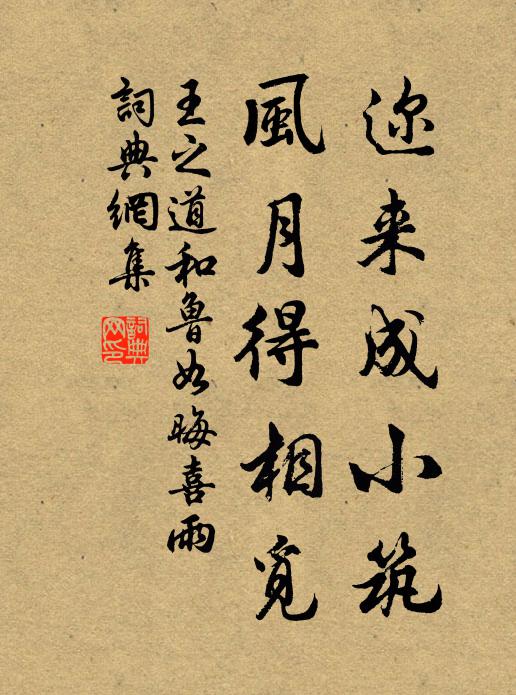 迩来成小筑
風月得相覓
王之道和魯如晦喜雨
詞典網集
詞典网印